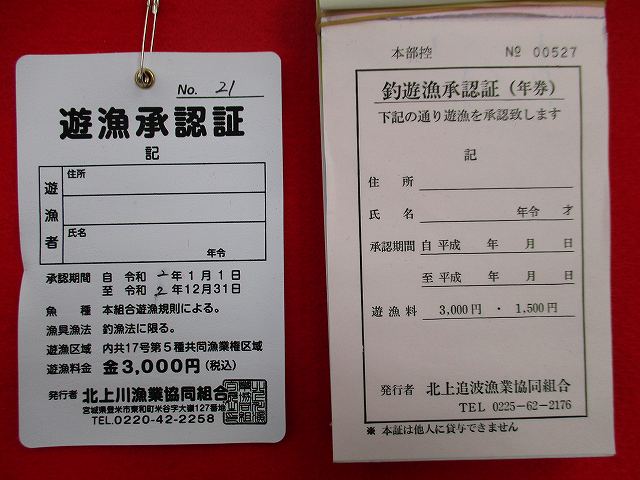 No. 21
遊漁承認証
記
遊漁者
住所
氏名
年令
承認期間 自 令和 2年1月1日
至 令和 2年12月31日
魚種 本組合遊漁規則による。
漁具漁法 釣漁法に限る。
遊漁区域 内共17号第5種共同漁業権区域
遊漁料金 金3,000円(税込)
発行者 北上川漁業協同組合
宮城県登米市東和町米谷字大嶺127番地
TEL.0220-42-2258
本部控 № 00527
釣遊漁承認証(年券)
下記の通り遊漁を承認致します
記
住所
氏名 年令 才
承認期間 自 平成 年 月 日
至 平成 年 月 日
遊漁料 3,000円・1,500円
発行者 北上追波漁業協同組合
TEL 0225-62-2176
※ 本証は他人に貸与できません